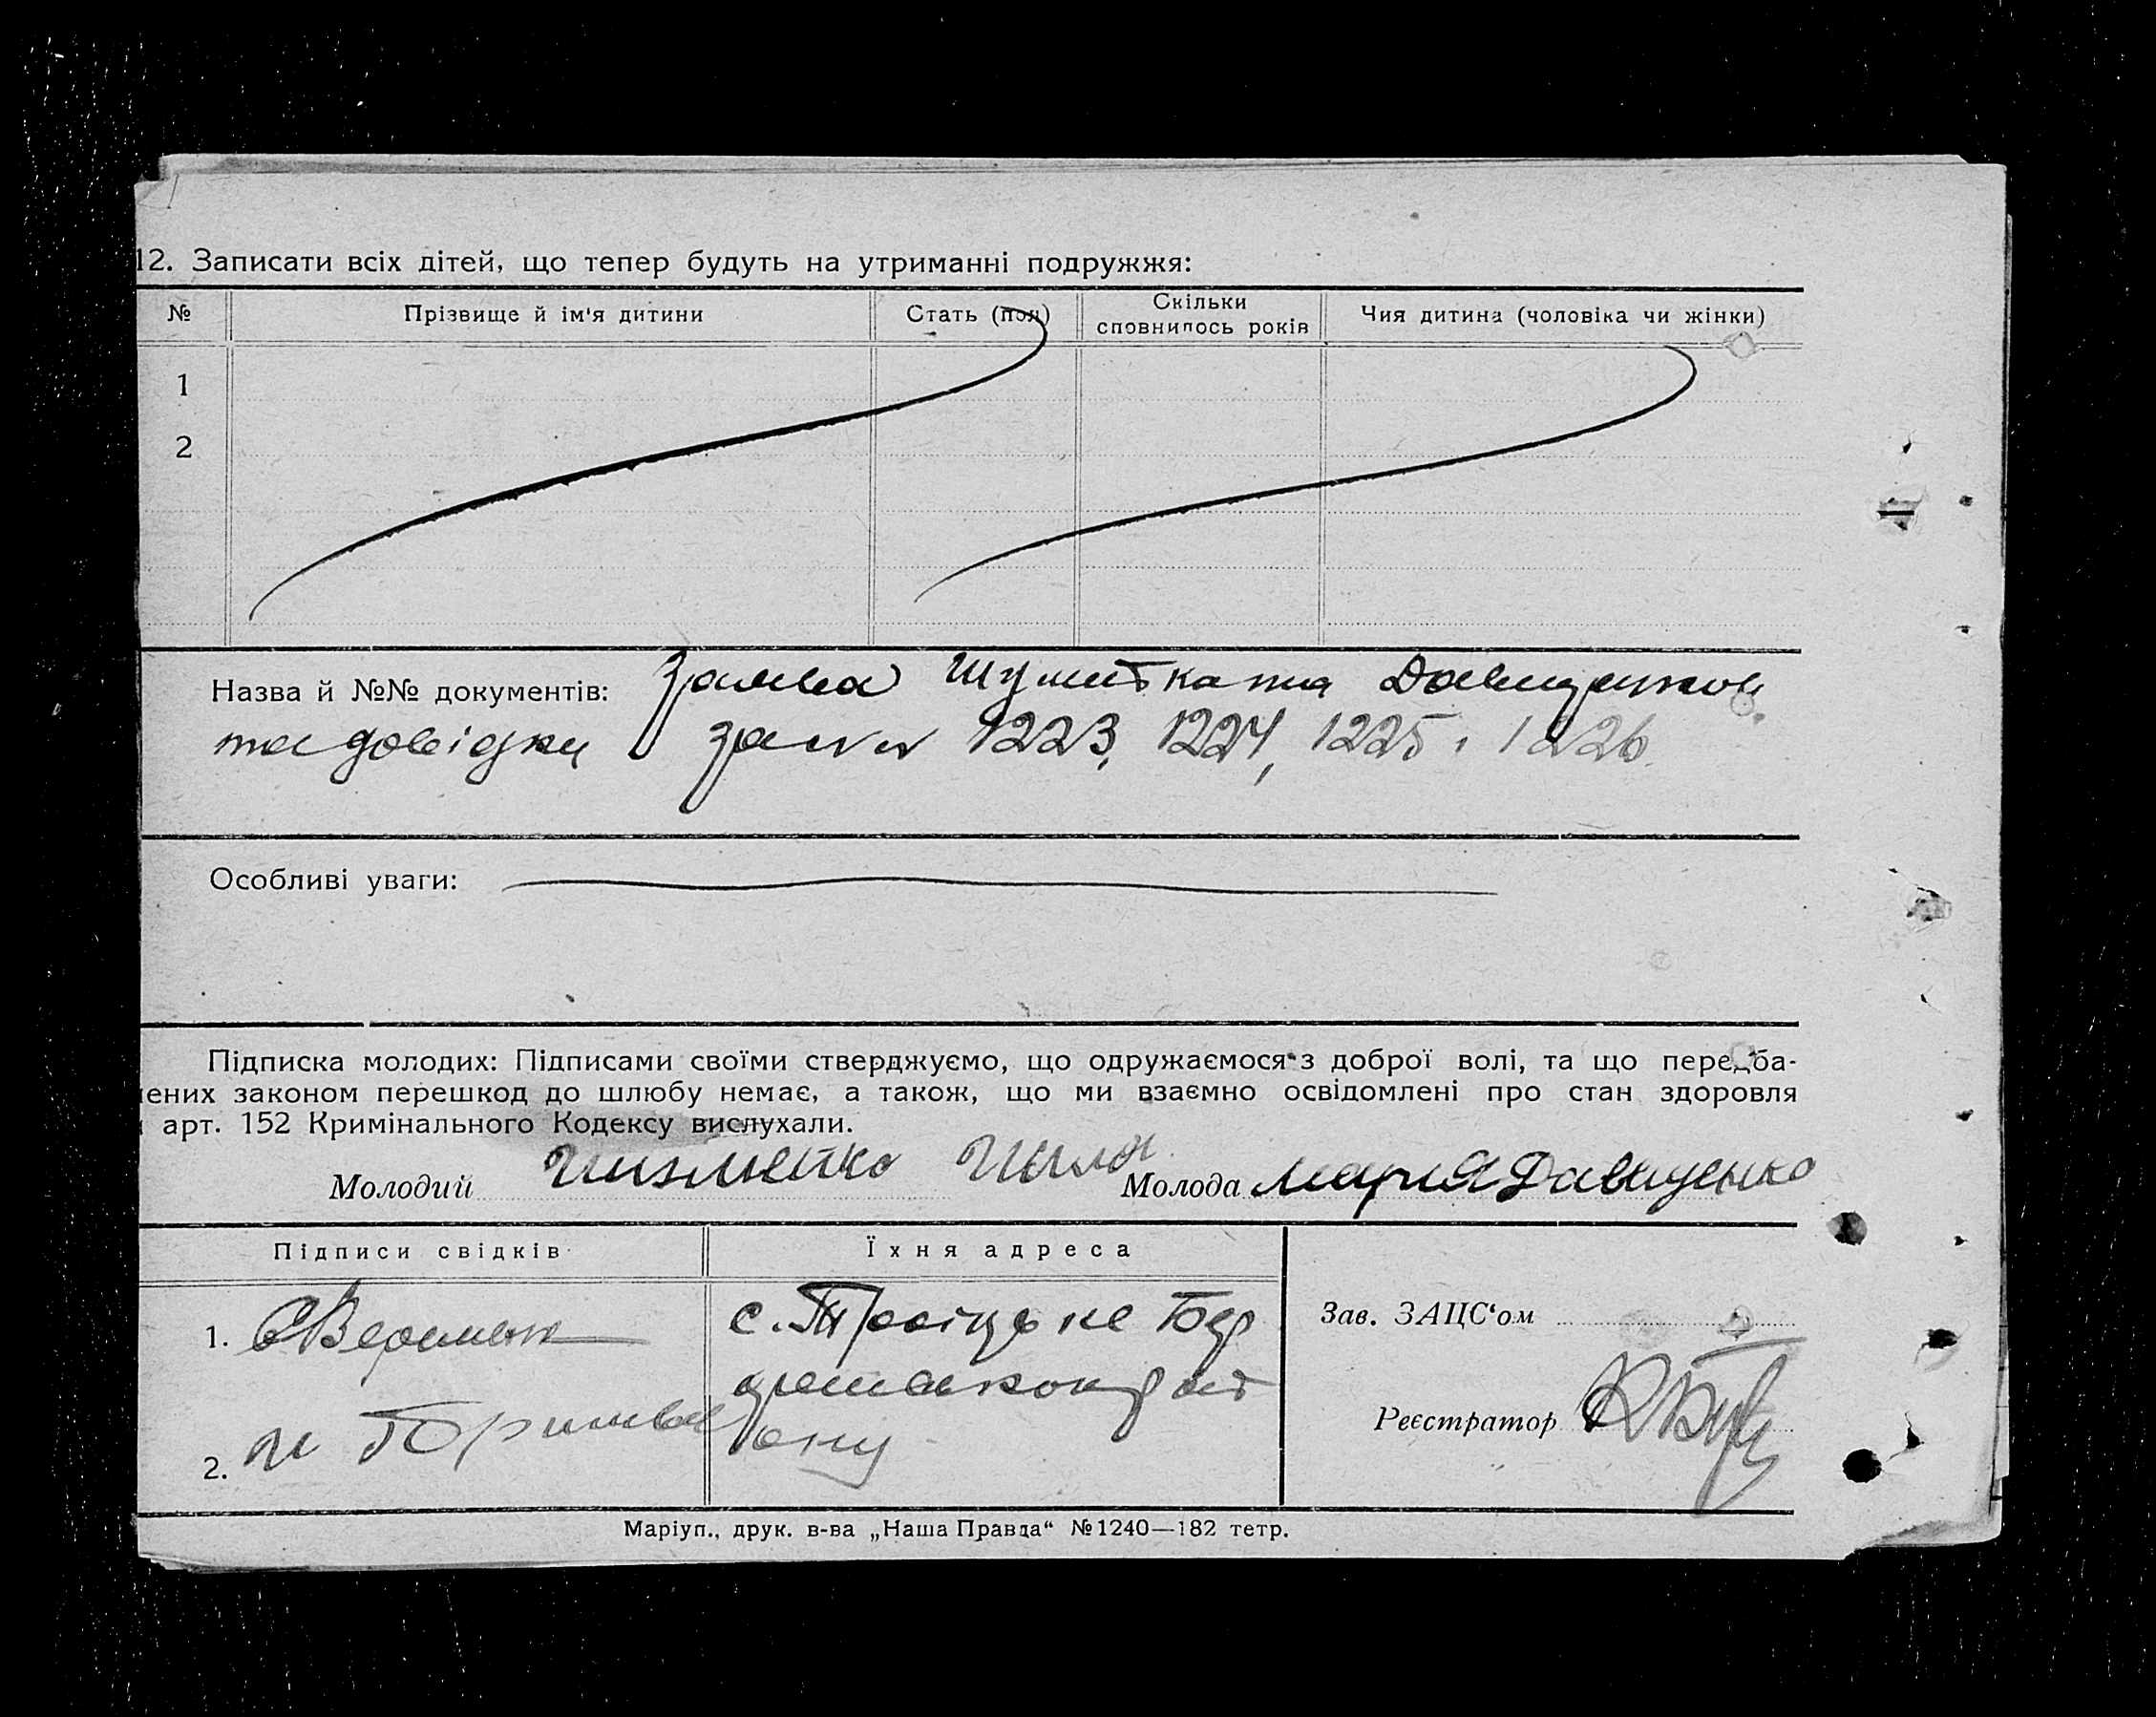 12. Записати всіх дітей, що тепер будуть на утриманні подружжя:
№ Прізвище й ім'я дитини Стать (пол) Скільки сповнилось років Чия дитина (чоловіка чи жінки)
1
2
Назва й №№ документів: Заява та
та довідки за 1223, 1224, 1225, 1226
Особливі уваги:
Підписка молодих: Підписами своїми стверджуємо, що одружаємося з доброї волі, та що передба-
ених законом перешкод до шлюбу немає, а також, що ми взаємно освідомлені про стан здоровля
арт. 152 Кримінального Кодексу вислухали.
Молодий Молода Мария Давиденко
Підписи свідків Їхня адреса
1. с. Троїцьке Бер
Зав. ЗАЦС'ом
дянського рай
2. ону
Реєстратор
Маріуп., друк. в-ва „Наша Правда“ №1240—182 тетр.